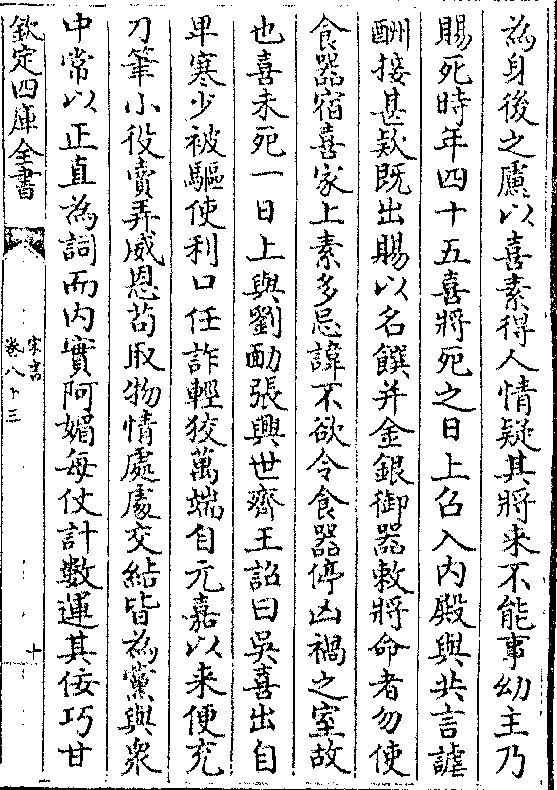 為身後之慮以喜素得人情疑其將来不能事幼主乃
賜死時年四十五喜將死之日上召入内殿與共言謔
酬接甚欵既出賜以名饌并金銀御器敕將命者勿使
食器宿喜家上素多忌諱不欲令食器停凶禍之室故
也喜未死一日上與劉勔張興世齊王詔曰吳喜出自
卑寒少被驅使利口任詐輕狡萬端自元嘉以来便充
刀筆小役賣弄威恩苟取物情處處交結皆為黨與衆
中常以正直為詞而内實阿媚每仗計數運其佞巧甘
欽定四庫全書
宋書
卷八十三
十